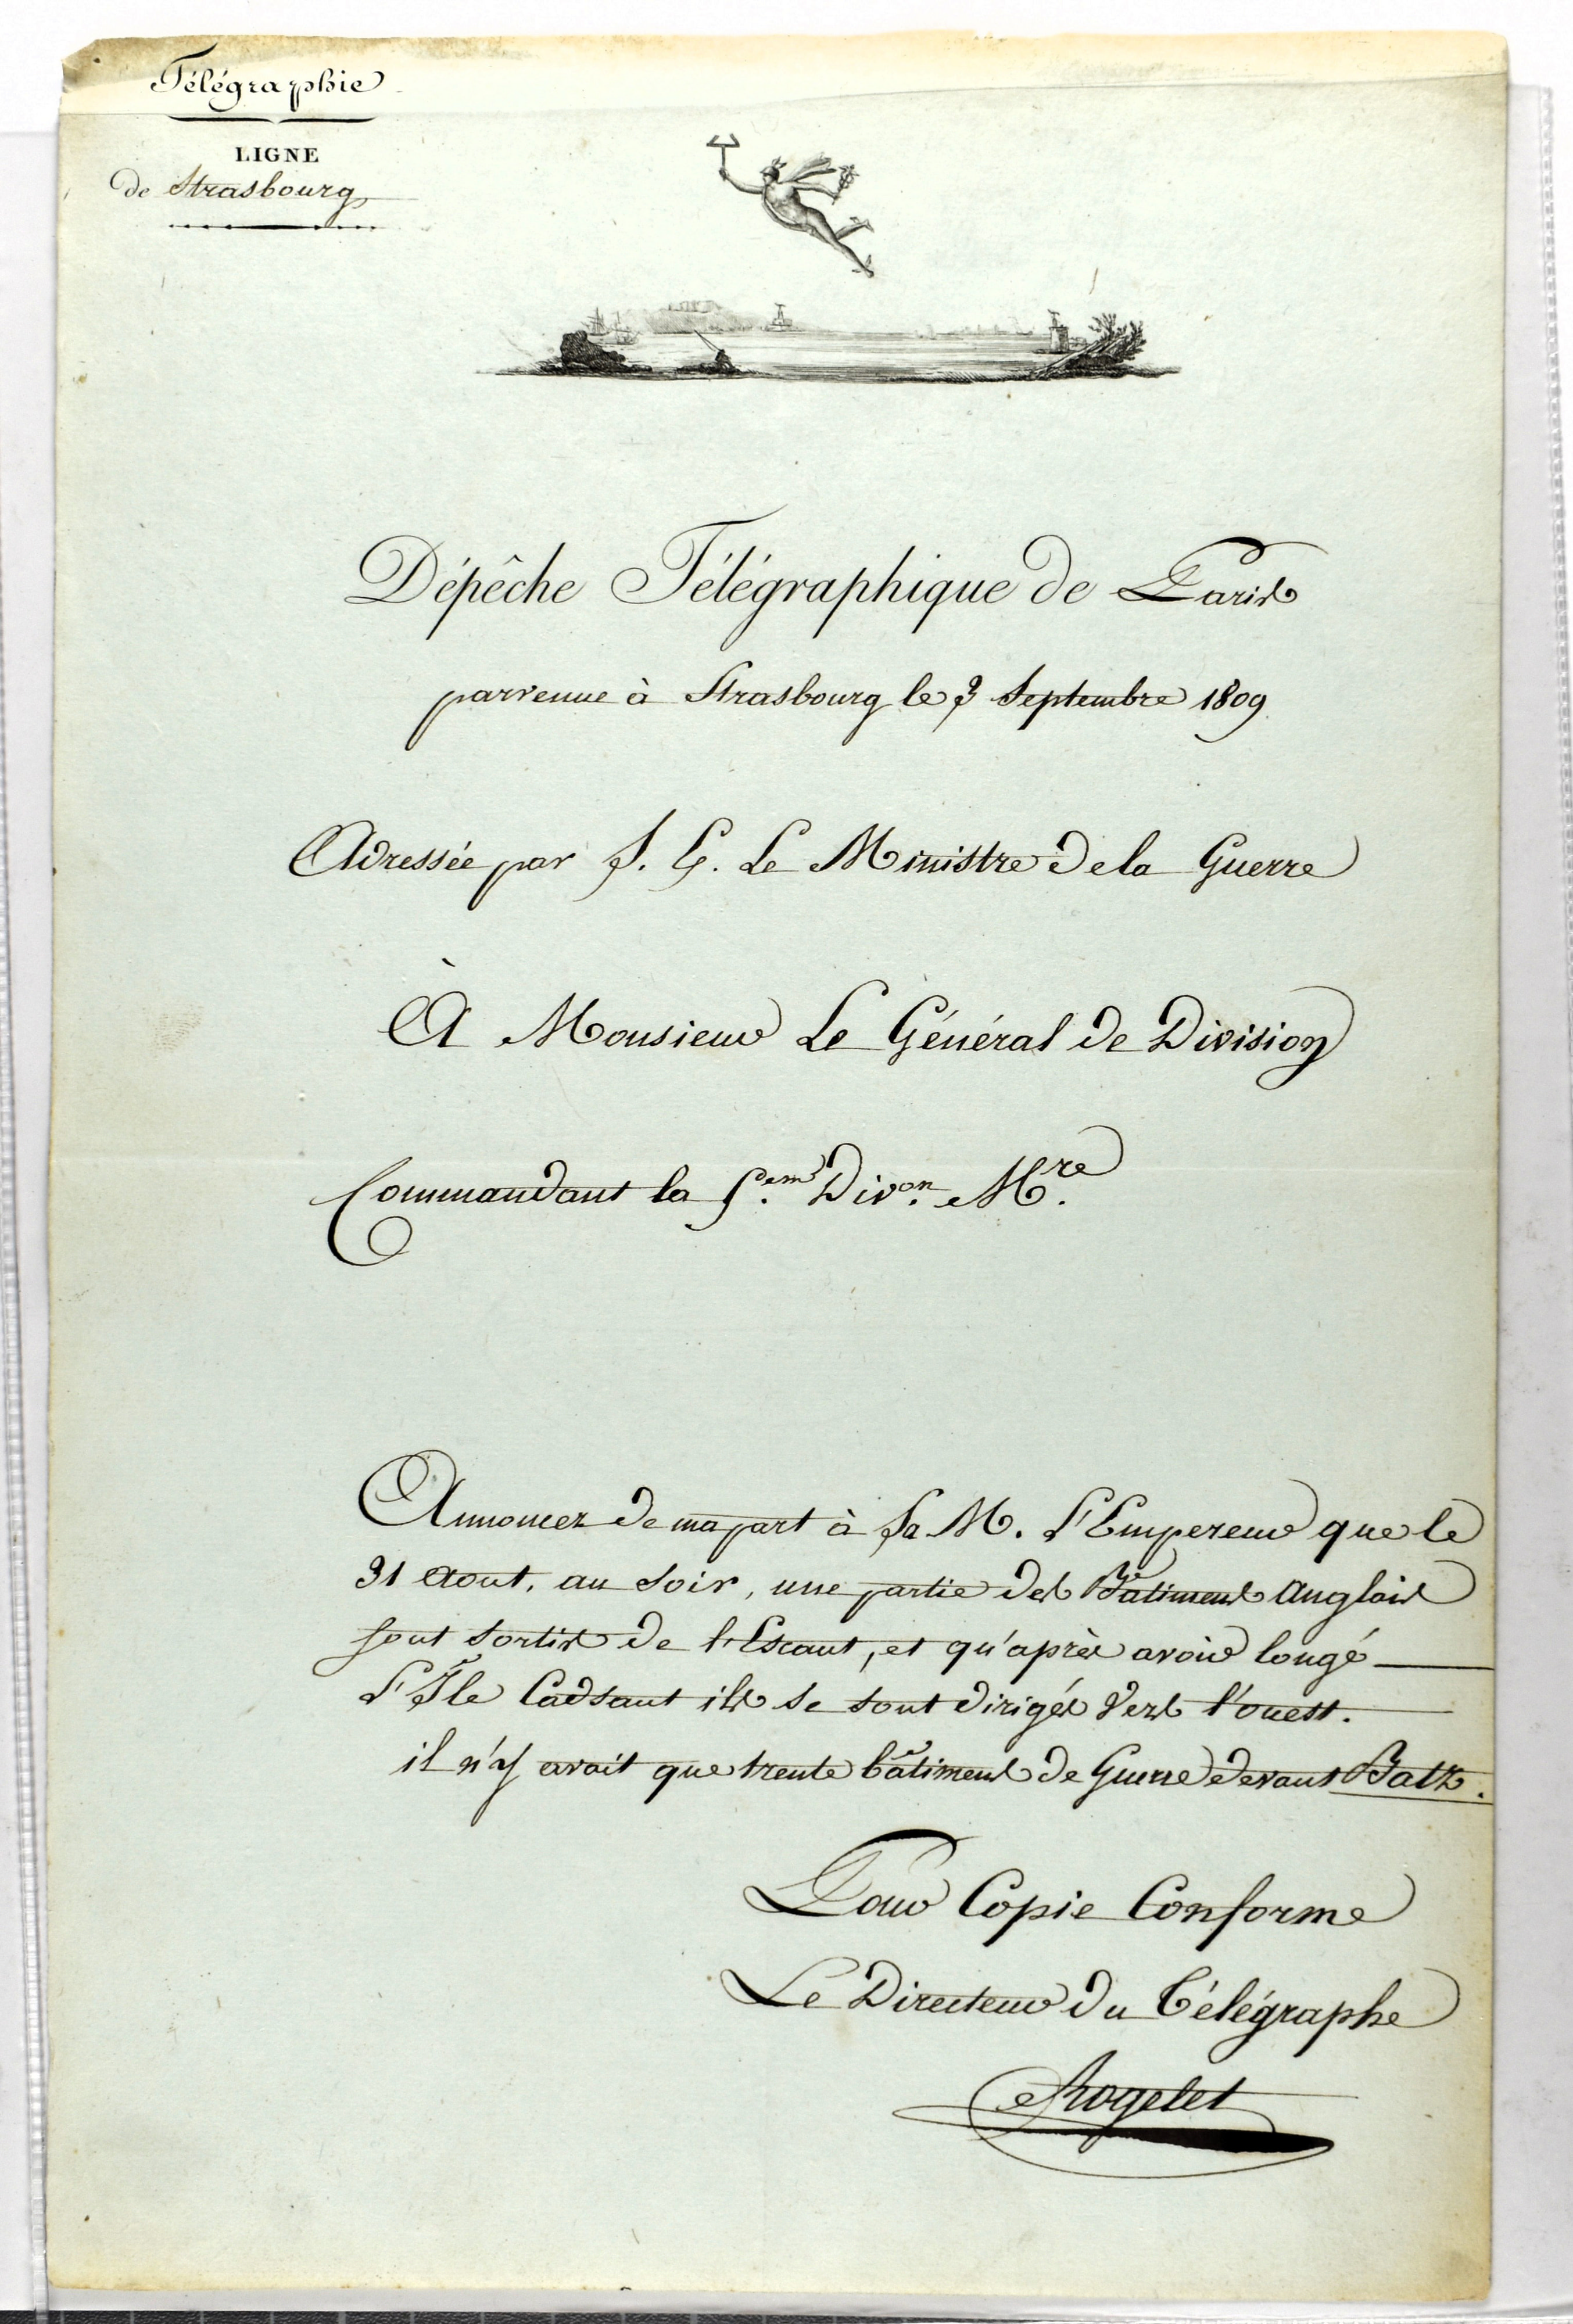 Télégraphie
LIGNE
de Strasbourg
Dépêche Télégraphique de Paris
parvenue à Strasbourg le 3 Septembre 1809
Adressée par S. E. Le Ministre de la Guerre
À Monsieur Le Général de Division
Commandant la 5.em Div.on M.re
Annoncez de ma part à Sa M. L'Empereur que le
31 Aout, au soir, une partie des Bâtimens Anglais
sont sortis de l'Escaut, et qu'après avoir longé
L'Île Cadsant ils se sont dirigés Vers l'ouest.
il n'y avait que trente bâtimens de Guerre devant Batz.
Pour Copie Conforme
Le Directeur du Télégraphe
Rogelet